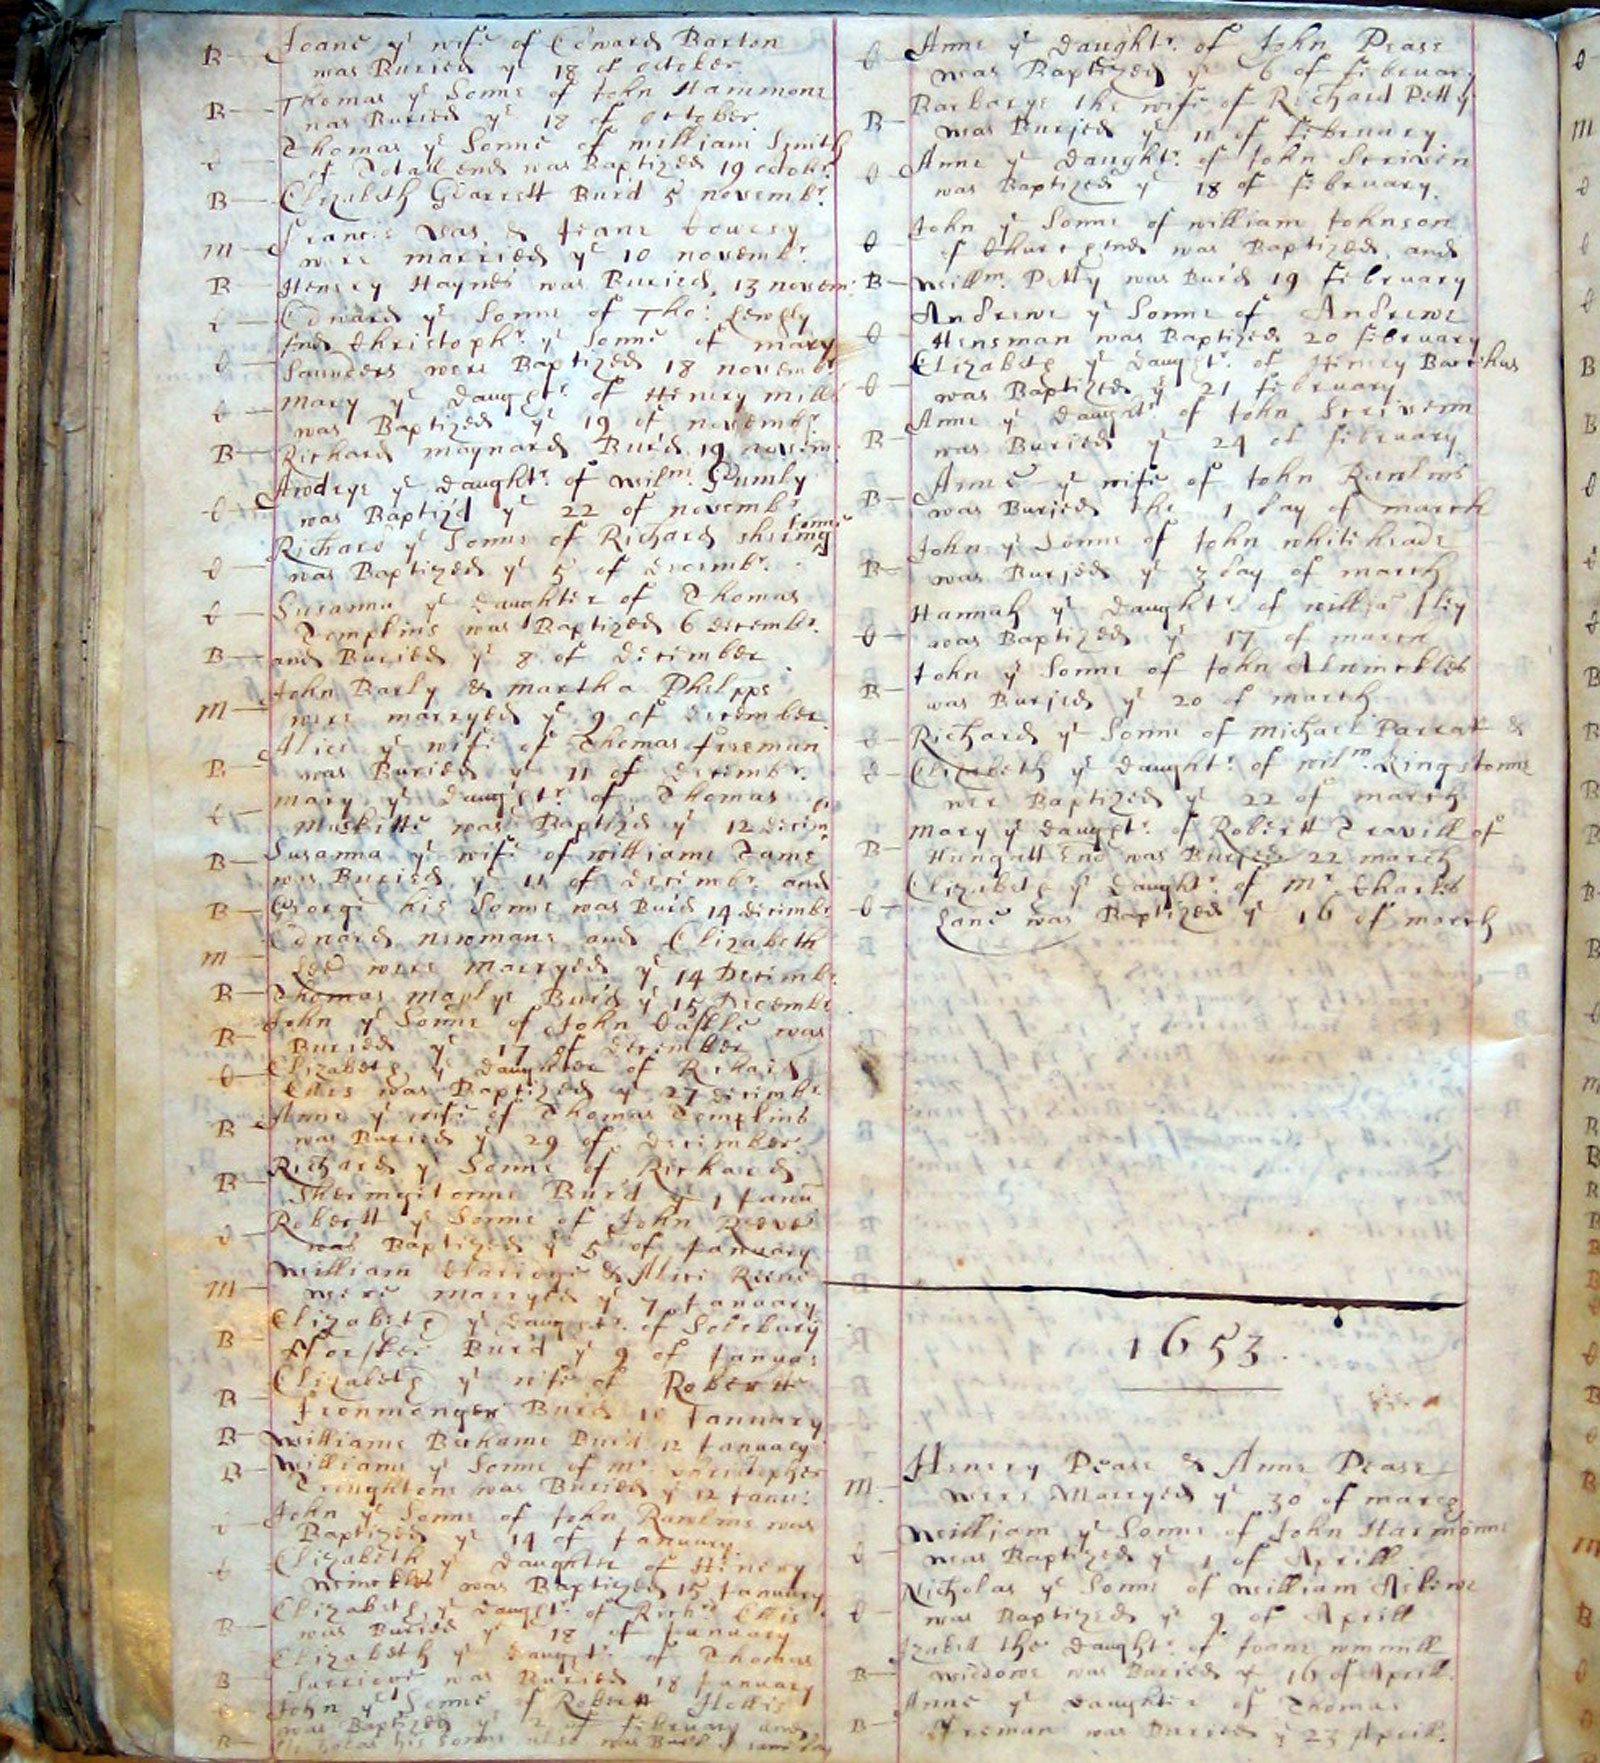 B Joane yᵉ wife of Edward Barton
was Buried yᵉ 18 of october
B Thomas yᵉ Sonne of John Hammone
was Buried yᵉ 18 of october
Thomas yᵉ Sonne of william Smith
of end was Baptized 19 octobr.
B Elizabeth Garrett Burd 5 novembr.
m Francis & Jeane
were married yᵉ 10 novembr.
B Henery Haynes was Buried 13 novem:
Edward yᵉ Sonne of Tho:
And Christophr. yᵉ Sonne of mary
Saunders were Baptized 18 novembr
mary yᵉ Daughtr. of Henery mills
was Baptized yᵉ 19 of novembr.
B Richard maynard Burd 19 novem:
Awdrye yᵉ Daughtr. of Wilm. Gumly
was Baptizd yᵉ 22 of novembr
Richard yᵉ Sonne of Richard
was Baptized yᵉ 5 of Decembr.
Susanna yᵉ Daughter of Thomas
Tompkins was Baptized 6 Decembr.
B and Buried yᵉ 8 of December
m John Barly & martha Phelpps
were marryed yᵉ 9 of December
B Alice yᵉ wife of Thomas freeman
was Buried yᵉ 11 of Decembr.
mary yᵉ Daughtr. of Thomas
was Baptizd yᵉ 12 Decem
B Susanna yᵉ wife of williame Tame
was Buried yᵉ 11 of Decembr and
B George his Sonne was Burd 14 decembr
m Edward newmane and Elizabeth
Lee were Marryed yᵉ 14 Decembr.
B Thomas maplye Burd yᵉ 15 Decembr
B John yᵉ Sonne of John Castle was
Buried yᵉ 17 of December
Elizabeth yᵉ Daughter of Richard
Ellis was Baptized yᵉ 27 decembr.
B Anne yᵉ wife of Thomas Tompkins
was Buried yᵉ 29 of December
B Richard yᵉ Sonne of Richard
Burd yᵉ 1 Janu
Robertt yᵉ Sonne of John Reeve
was Baptized yᵉ 5 of January
m William & Alice Reeve
were marryed yᵉ 7 January
B Elizabeth yᵉ Daughtr. of
Burd yᵉ 9 of Januar
B Elizabeth yᵉ wife of Robertt
Ironmonger Burd 10 January
B Williame Beckame Burd 12 January
B Williame yᵉ Sonne of mr. Christopher
Troughtone was Buried yᵉ 12 Janu:
John yᵉ Sonne of John Rawlins was
Baptized yᵉ 14 of January
Elizabeth yᵉ Daughter of Henery
was Baptized 15 January
B Elizabeth yᵉ Daughtr. of Richrd Ellis
was Buried yᵉ 18 of January
B Elizabeth yᵉ Daughtr. of Thomas
was Buried 18 January
John yᵉ Sonne of Robertt
was Baptized yᵉ 2 of february and
B his Sonne also was
Anne yᵉ Daughtr. of John Pease
was Baptized yᵉ 6 of february
B Barbarye the wife of Richard Petty
was Buried yᵉ 11 of february.
Anne yᵉ Daughtr. of John Scriven
was Baptized yᵉ 18 of february.
John yᵉ Sonne of william Johnson
of Church end was Baptized and
B Willm. Petty was Burd 19 february
Andrewe yᵉ Sonne of Andrewe
Hensman was Baptized 20 february
Elizabeth yᵉ Daughtr. of Henery
was Baptized yᵉ 21 february
B Anne yᵉ Daughtr. of John Scrivenn
was Buried yᵉ 24 of february
B Anne yᵉ wife of John Rawlins
was Buried the 1 day of march
B John yᵉ Sonne of John whiteheade
was Buried yᵉ 3 day of march
Hannah yᵉ Daughtr. of willia
was Baptized yᵉ 17 of march
B John yᵉ Sonne of John Alwinckles
was Buried yᵉ 20 of march
Richard yᵉ Sonne of michael Parrat &
Elizabeth yᵉ Daughtr. of wilm. Kingstonne
wer Baptized yᵉ 22 of march
B Mary yᵉ Daughtr. of Robertt Travill of
End was Buried 22 march
Elizabeth yᵉ Daughtr. of mr Charles
Lane was Baptized yᵉ 16 of march
1653.
m. Henery Pease & Anne Pease
were Marryed yᵉ 30 of march
William yᵉ Sonne of John Harmonne
was Baptized yᵉ 1 of Aprill
Nicholas yᵉ Sonne of William Askewe
was Baptized yᵉ 9 of Aprill
B Izabell the Daughtr. of Joane
widdowe was Buried yᵉ 16 of Aprill.
B Anne yᵉ Daughter of Thomas
Freman was Buried yᵉ 23 Aprill.